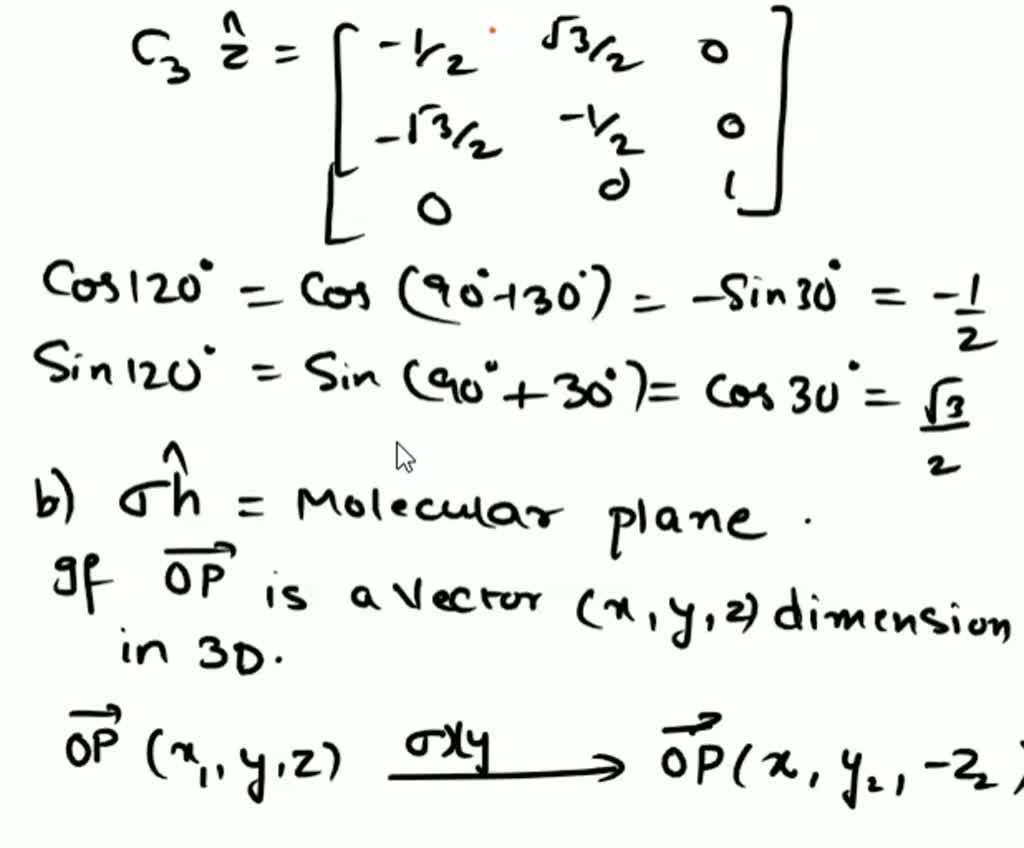 C₃ ẑ = [ -1/2 √3/2 0
-√3/2 -1/2 0
0 0 1 ]
Cos120° = Cos (90°+30°) = -Sin30° = -1/2
Sin120° = Sin (90°+30°) = Cos30° = √3/2
b) σĥ = Molecular plane.
If OP→ is a vector (x, y, z) dimension
in 3D.
OP→ (x₁, y, z) σxy → OP→ (x, y₂, -z₂)